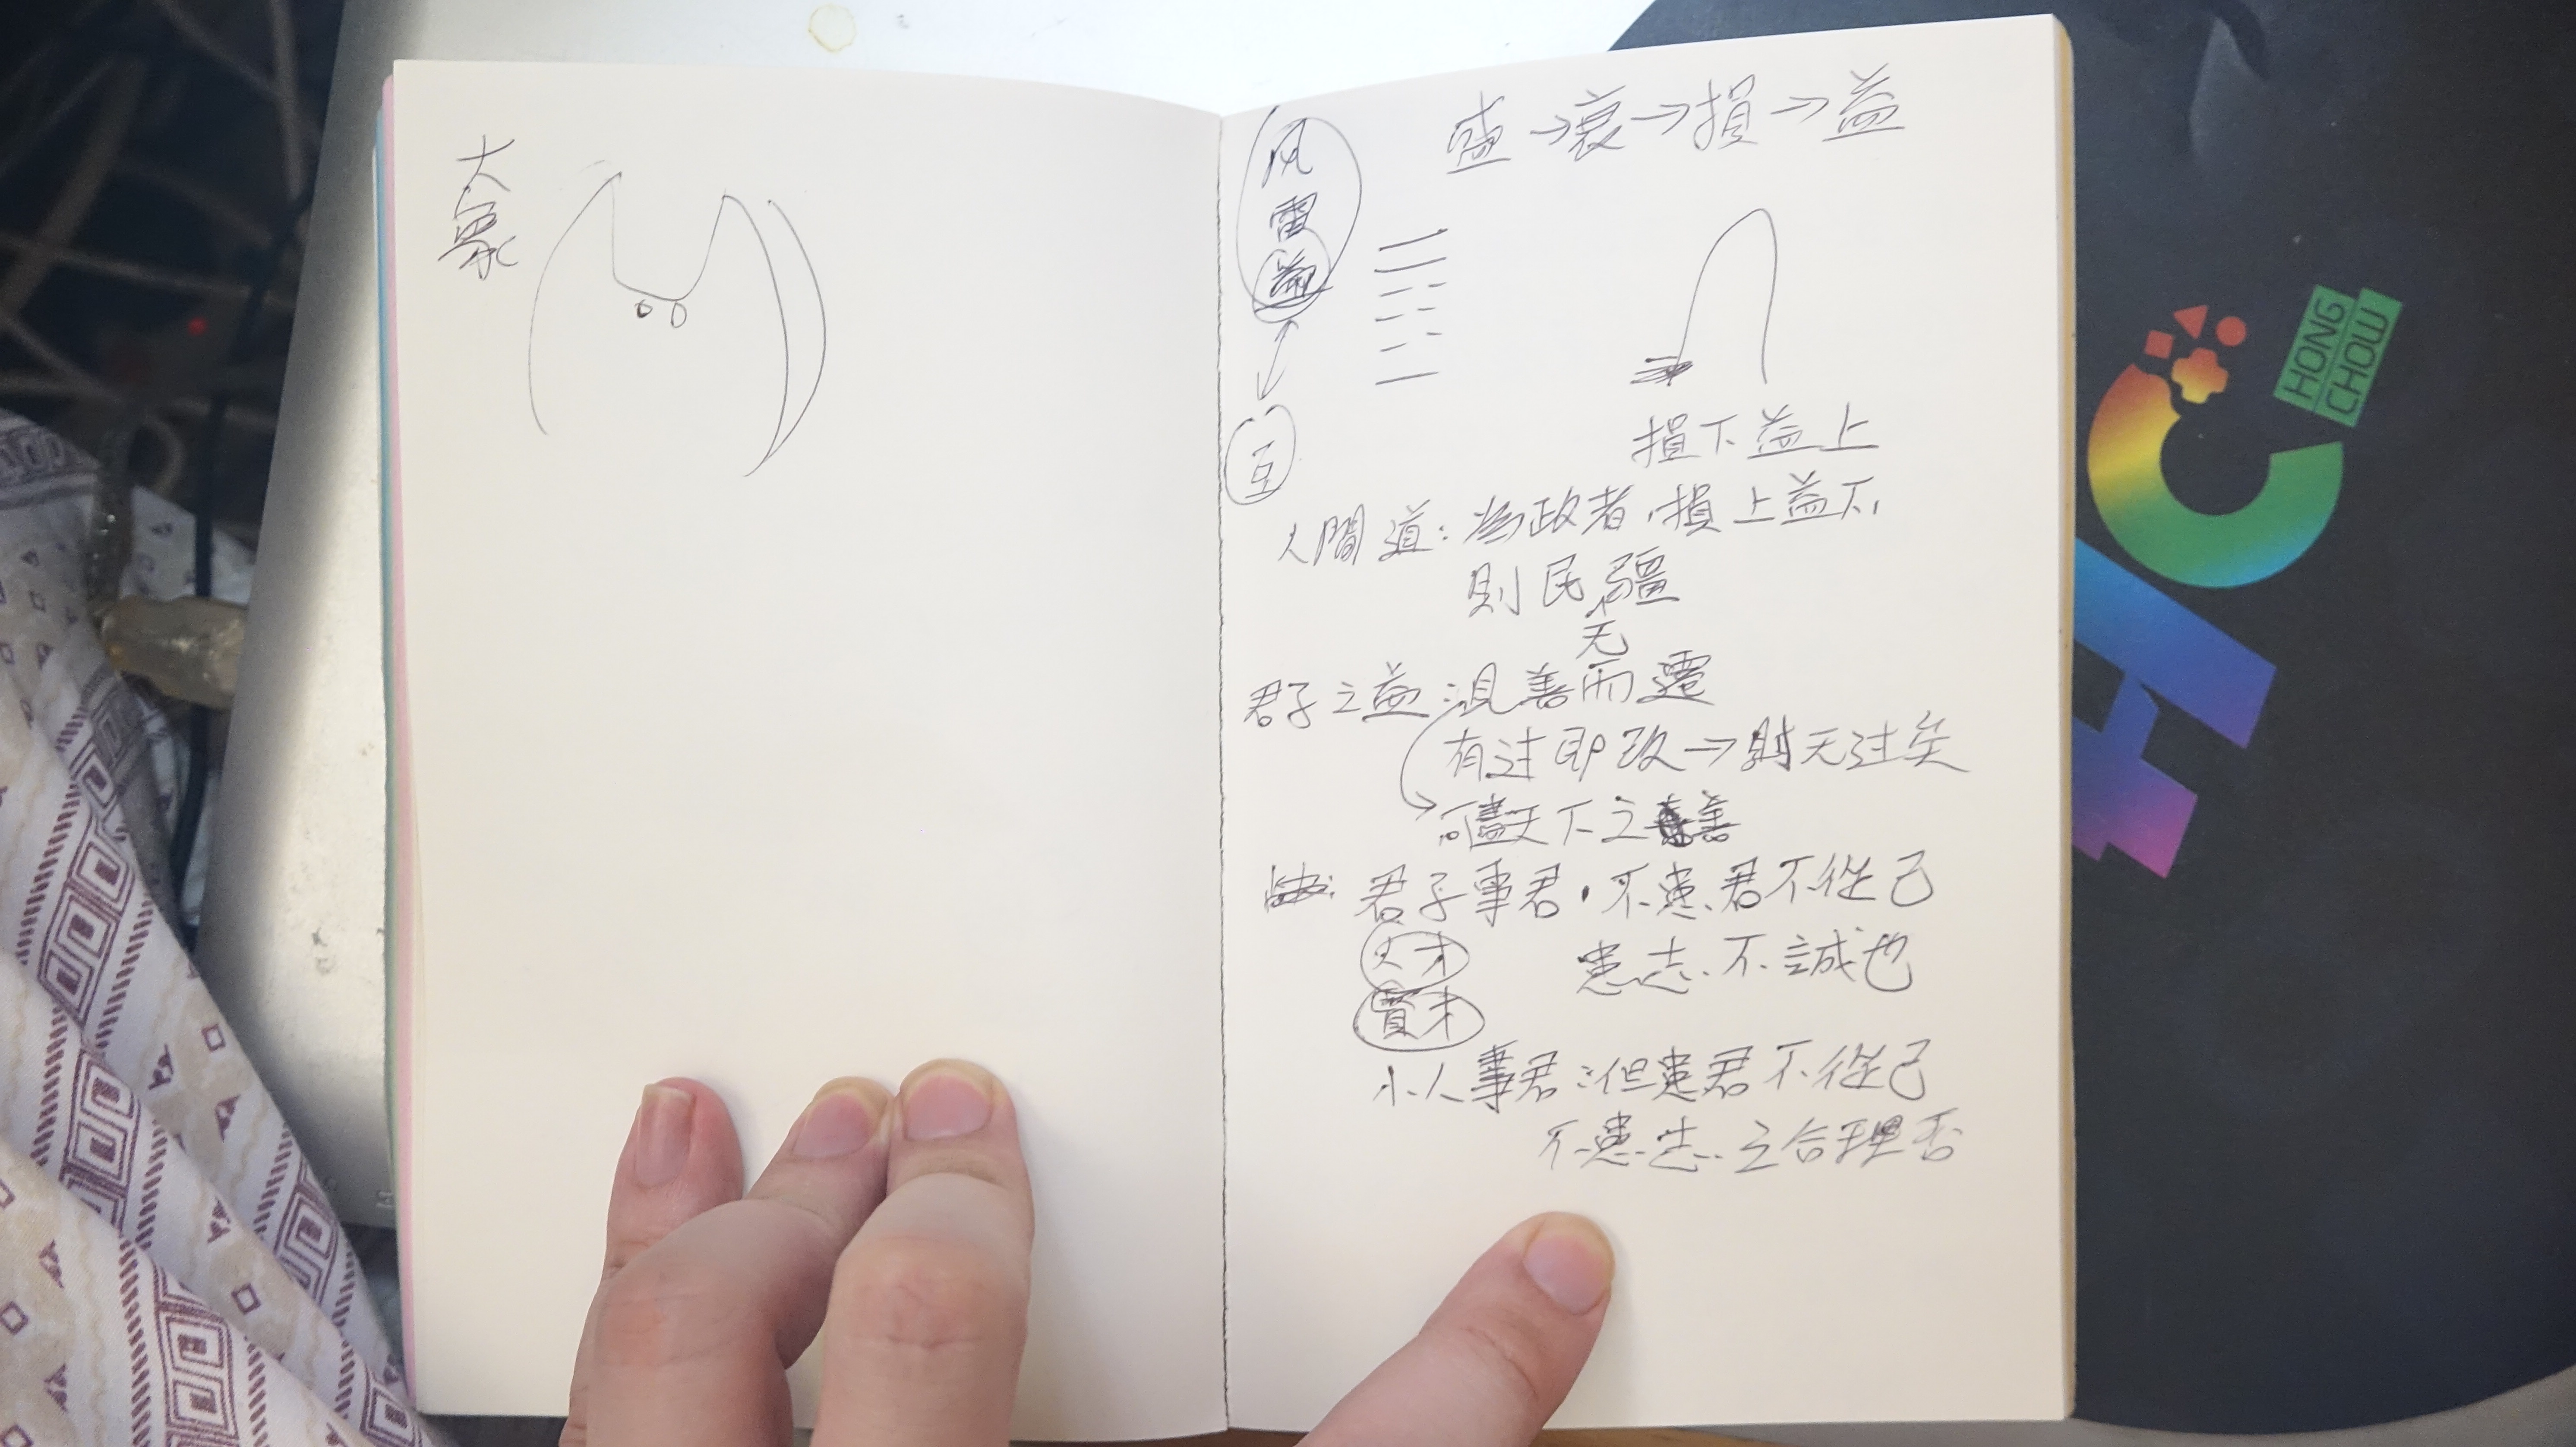 大
象
盛→衰→損→益
风
雷
益
互
損下益上
人間道:為政者,損上益下,
則民无疆
君子之益:見善而遷
有过即改→則无过矣
可盡天下之善
君子事君,不患君不從己
大才
實才
患志不誠也
小人事君:但患君不從己
不患志之合理否
HONG
CHOW
HC